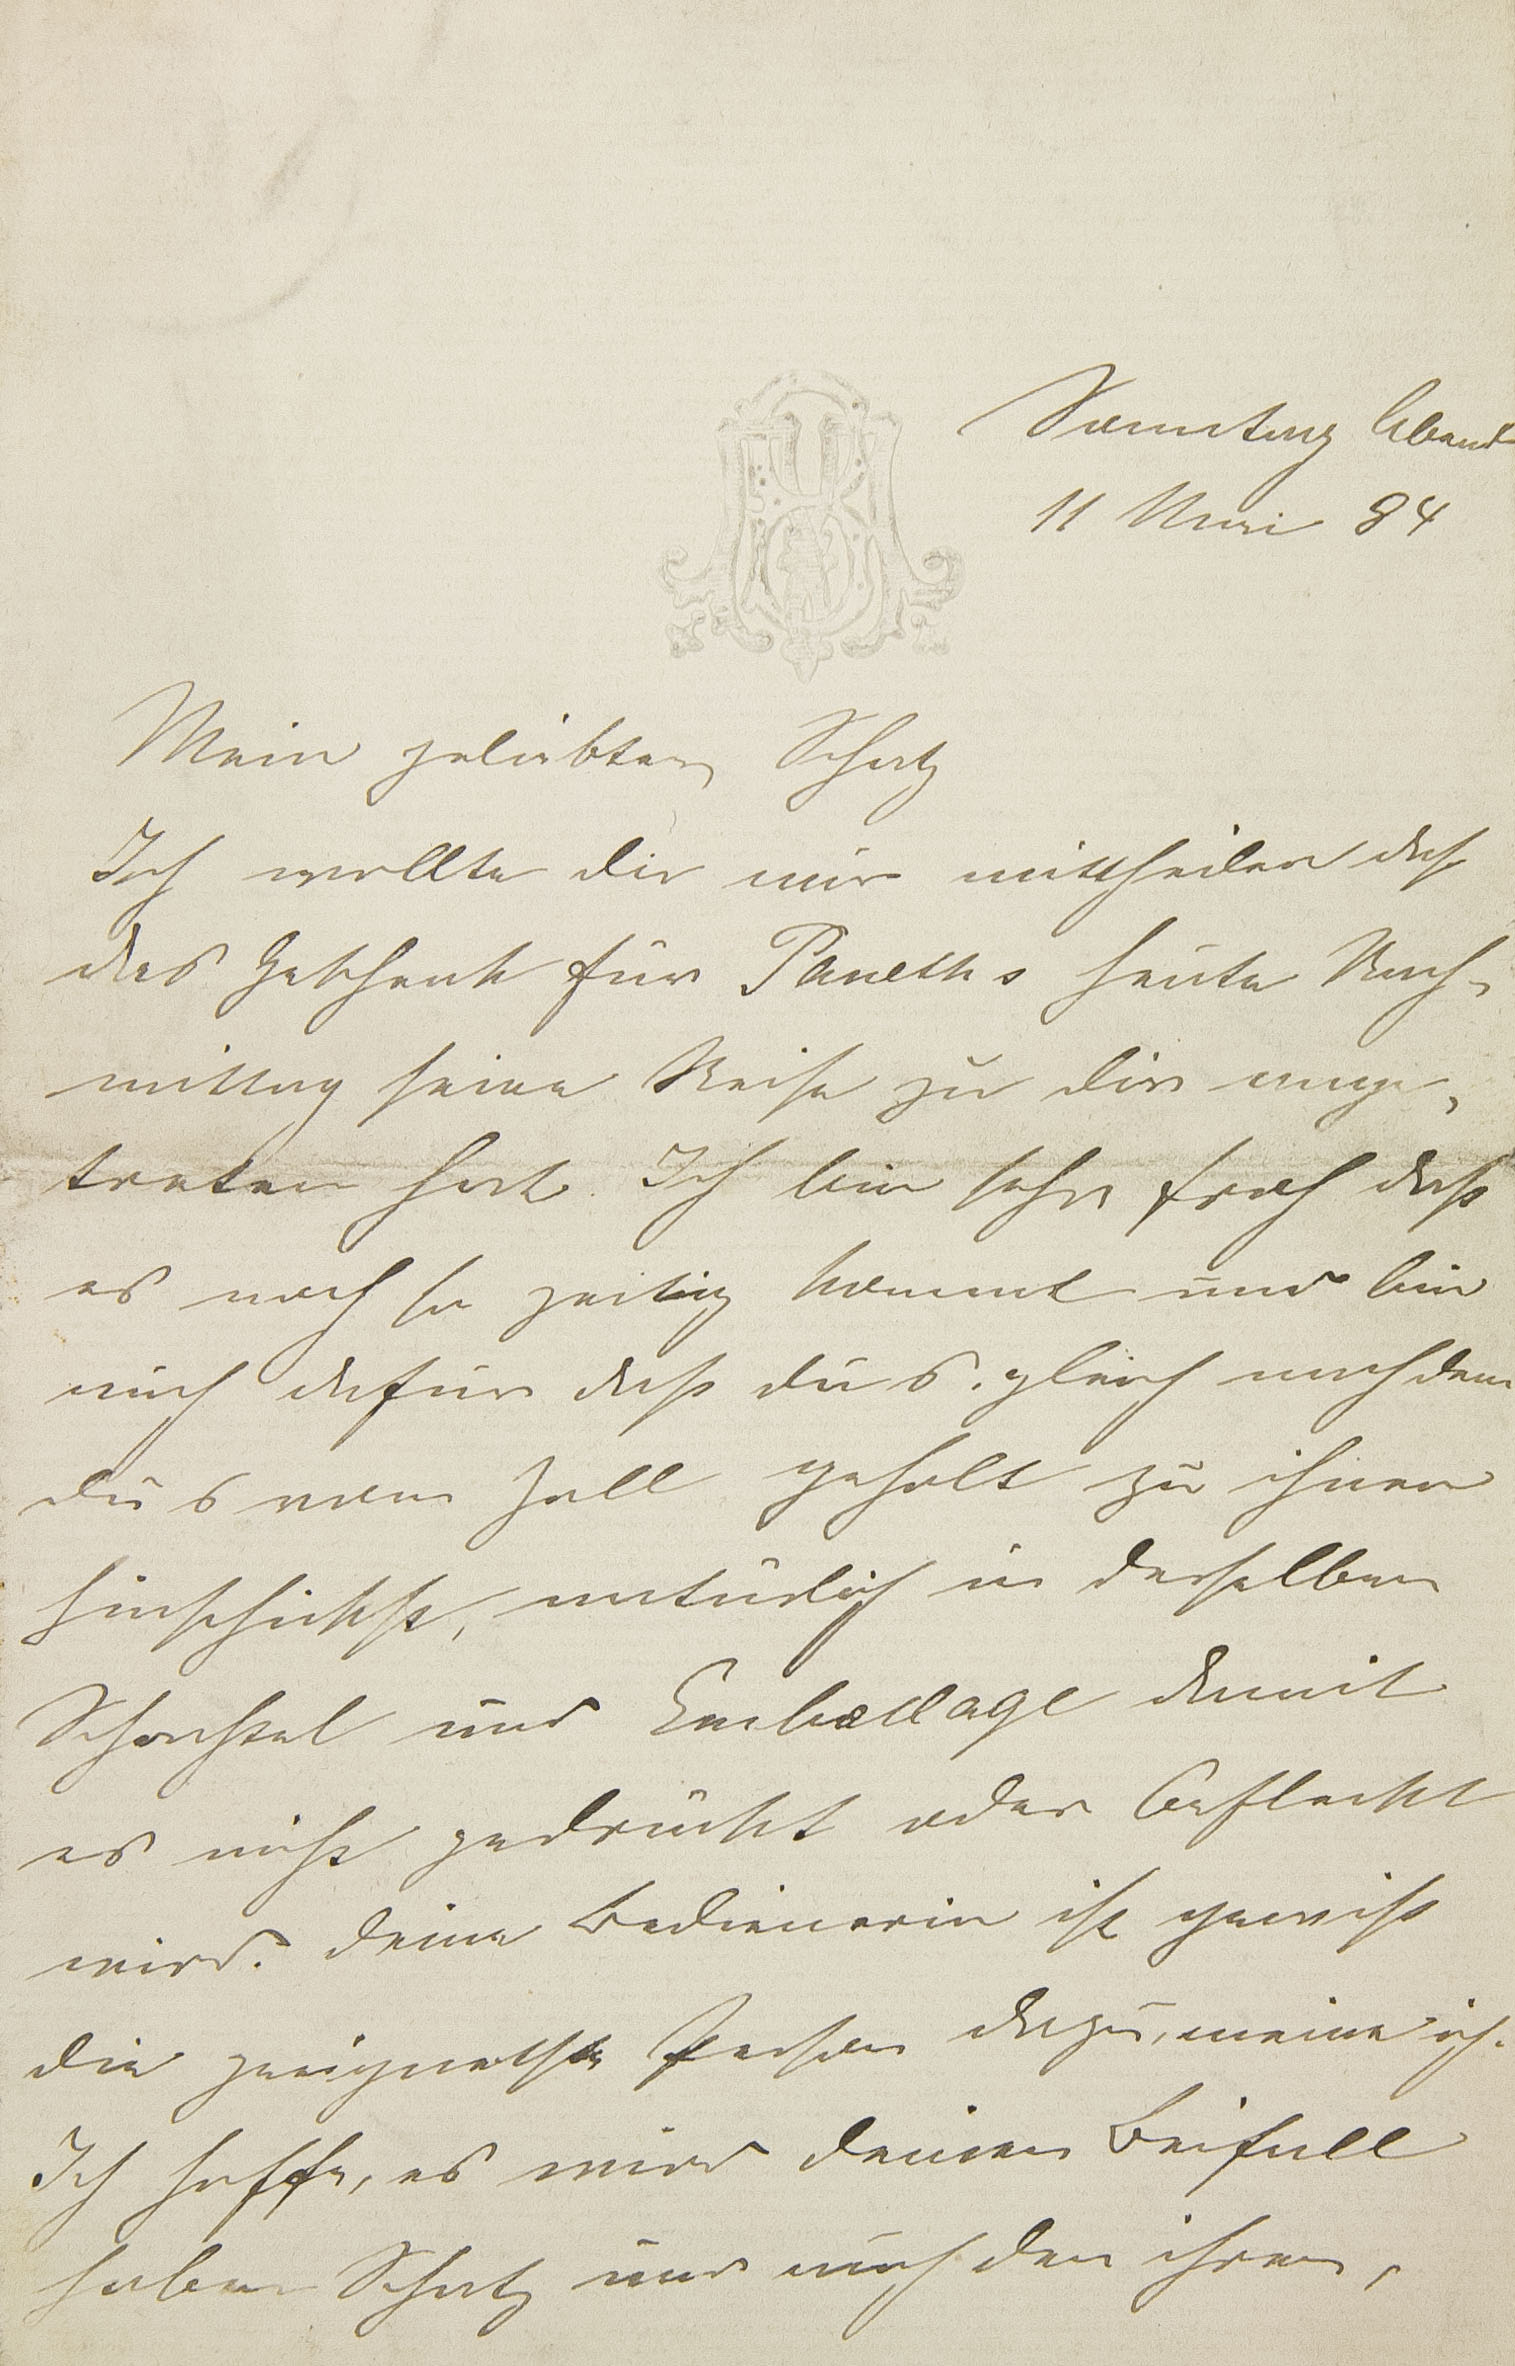 Sonntag Abend
11 Mai 84
Mein geliebter Schatz
Ich wollte dir nur mittheilen daß
das Geschenk für Paneths heute Nach-
mittag seine Reise zu dir ange-
treten hat. Ich bin sehr froh daß
es noch so zeitig kommt und bin
auch dafür daß du s. gleich nachdem
du s vom Zoll geholt zu ihnen
hinschickst, natürlich in derselben
Schachtel und Emballage damit
es nicht gedrückt oder befleckt
wird. deine Bedienerin ist gewiß
die geeignetste Person dazu, meine ich.
Ich hoffe, es wird deinen Beifall
haben Schatz und auch den ihren,